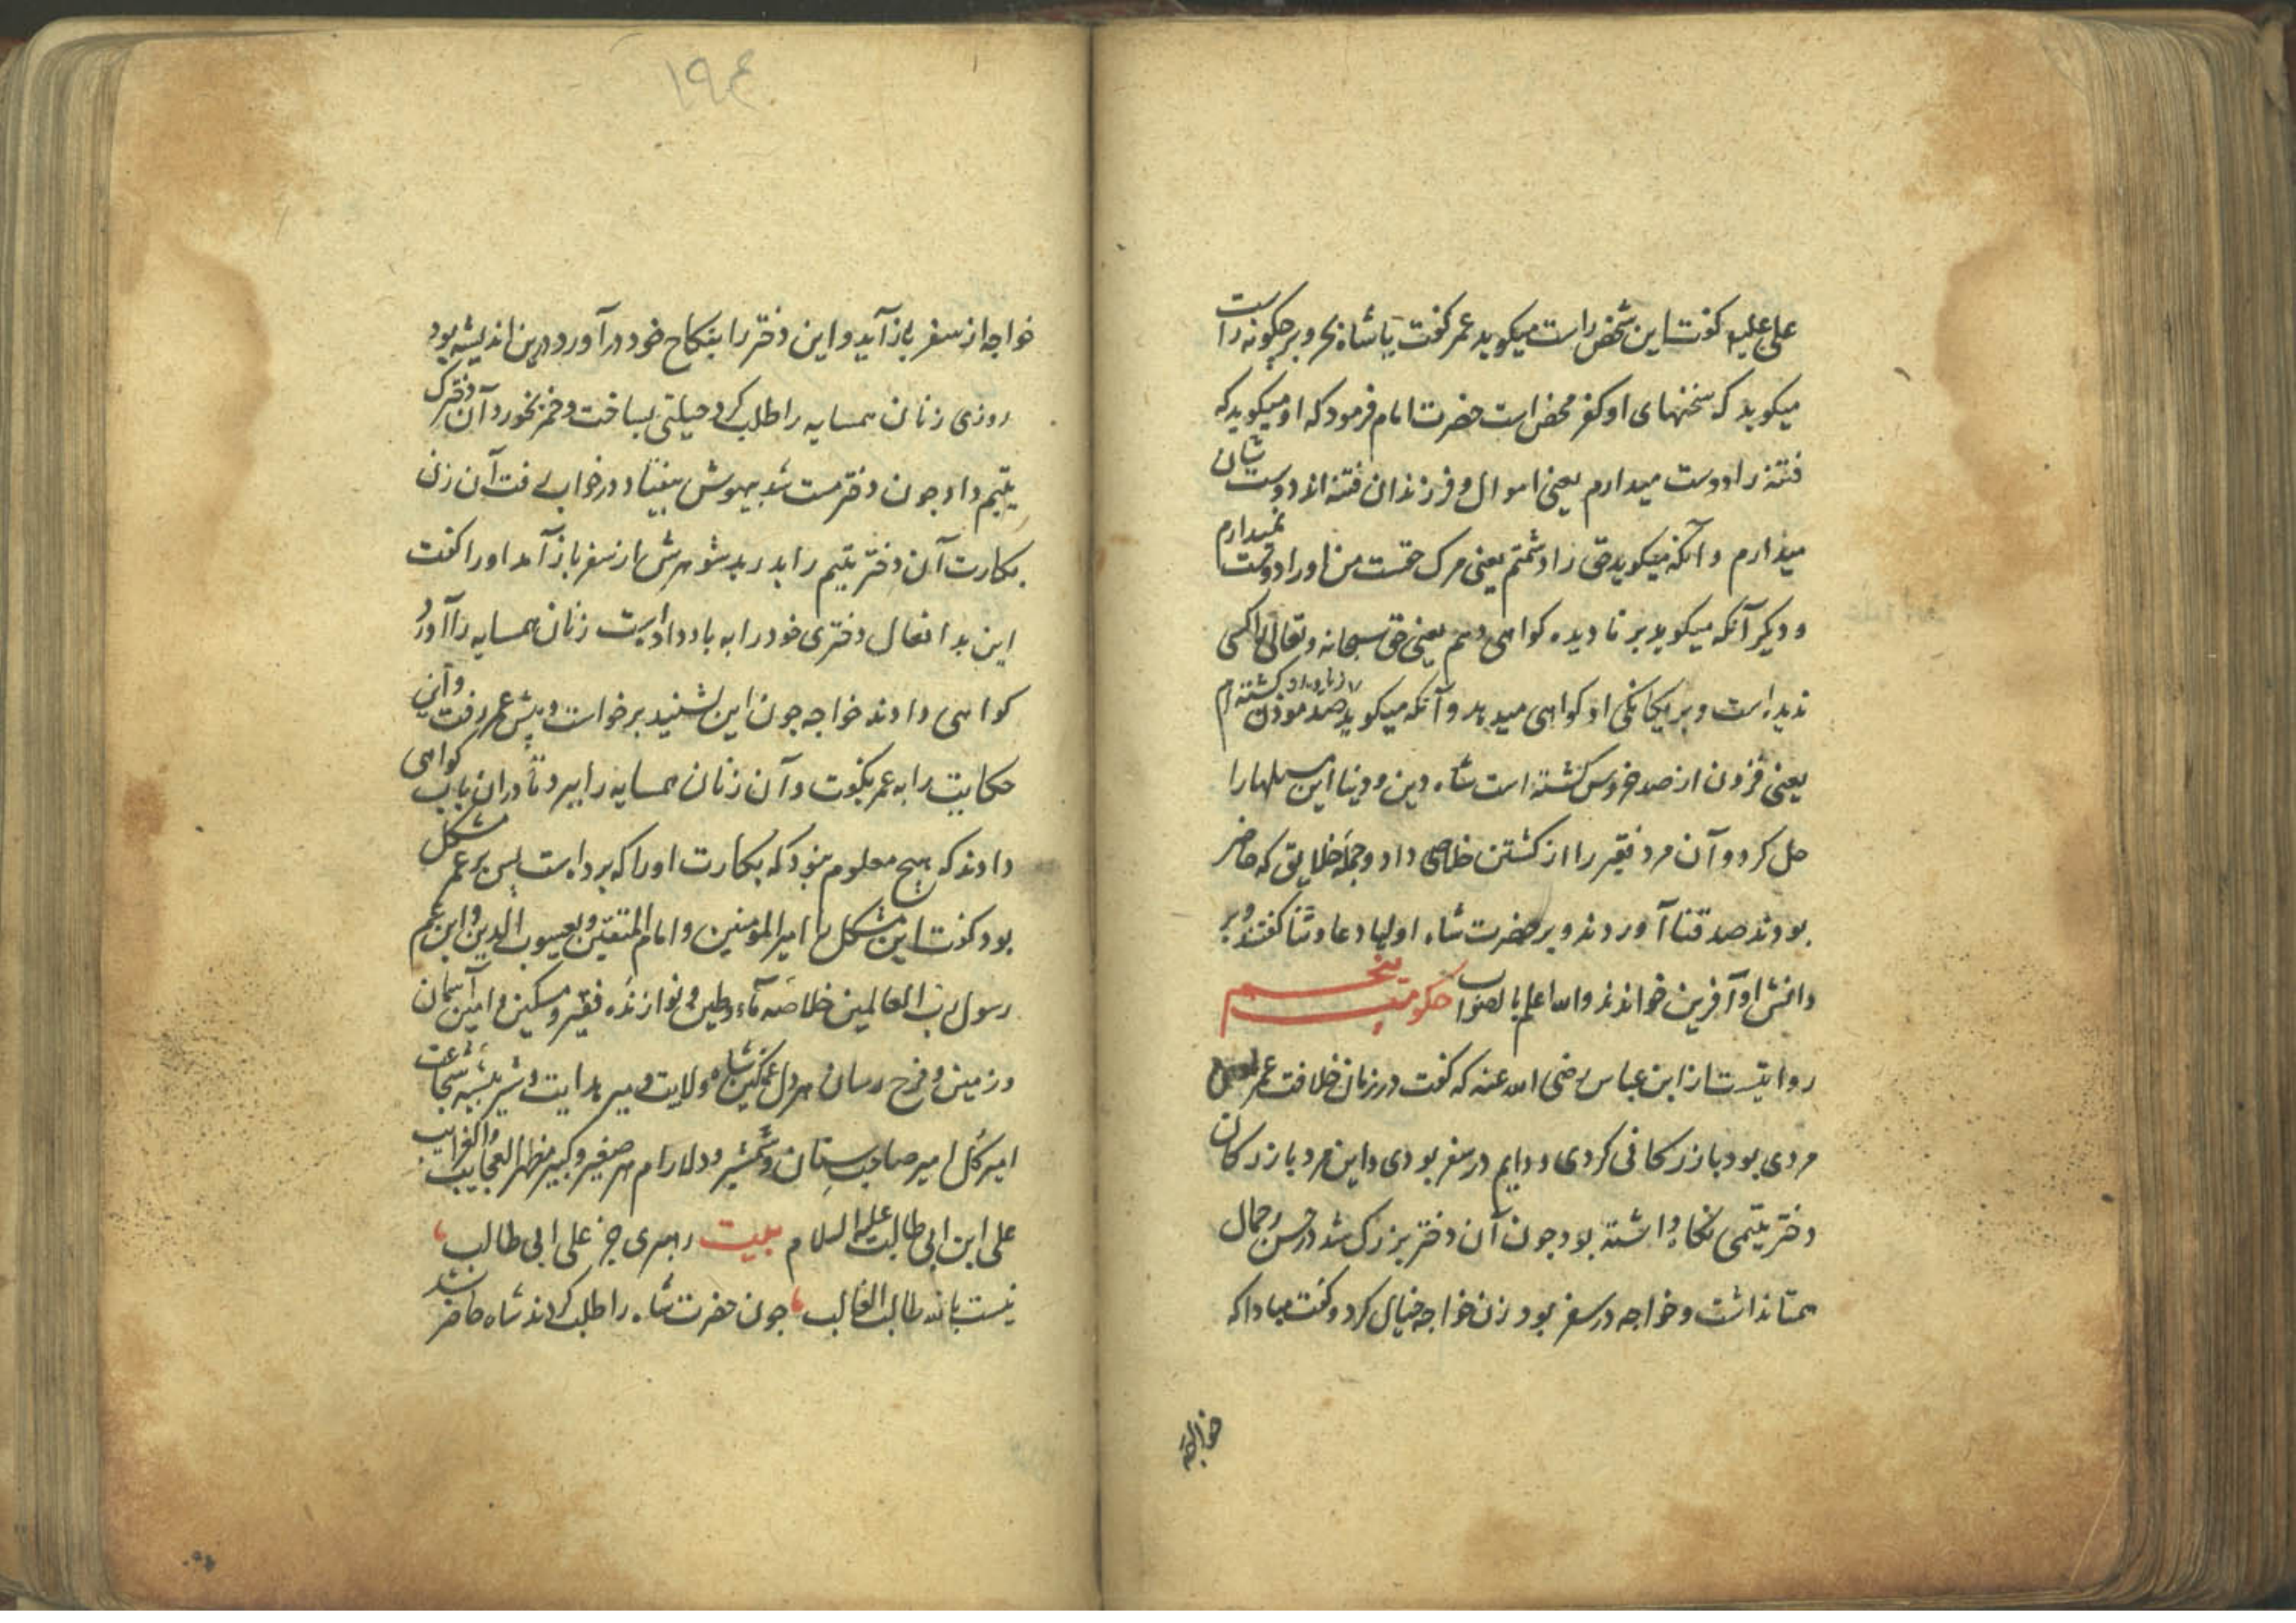 علی علیه گفت این شخص راست میکوید عمر کفت یا شاه بحر و بر چکونه راست
میکوید که سخنهای او کفر محض است حضرت امام فرمود که او میکوید که
فتنه را دوست میدارم یعنی اموال و فرزندان فتنه اند دوستشان
میدارم و آنکه میکوید حق را دشمنم یعنی مرک حقست من او را دوست نمیدارم
و دیکر آنکه میکوید بر نادیده کواهی دهم یعنی حق سبحانه و تعالی را کسی
ندیده است و بر یکانکی او کواهی میدهد و آنکه میکوید صد موذن کشته ام
یعنی فزون از صد خروس کشته است شاه دین و دنیا این مسلهارا
حل کرد و آن مرد فقیر را از کشتن خلاصی داد و جمله خلایق که حاضر
بودند صدقنا آوردند و بر حضرت شاه اولیا دعا و ثنا کفتند و بر
دانش او آفرین خواندند والله اعلم بالصواب حکومت پنجم
روایتست از ابن عباس رضی الله عنه که کفت در زمان خلافت عمر
مردی بود بازرکانی کردی و دایم در سفر بودی و این مرد بازرکان
دختر یتیمی نکاه داشته بود چون آن دختر بزرک شد در حسن و جمال
همتا نداشت و خواجه در سفر بود زن خواجه خیال کرد و کفت مبادا که
خواجه
۱۹۴
خواجه از سفر باز آید و این دختر را بنکاح خود در آورد درین اندیشه بود
روزی زنان همسایه را طلب کرد و حیلتی بساخت و خمر بخورد آن دخترک
یتیم داد چون دختر مست شد بیهوش بیفتاد در خواب رفت آن زن
بکارت آن دختر یتیم را بدرید شوهرش از سفر باز آمد او را کفت
این بد افعال دختری خود را به باد داد است زنان همسایه را آورد
کواهی دادند خواجه چون این بشنید برخواست و پیش عمر رفت و آن
حکایت را به عمر بکفت و آن زنان همسایه را ببرد تا در آن باب کواهی
دادند که هیچ معلوم نبود که بکارت او را که برده است پس بر عمر مشکل
بود کفت این مشکل را امیر المومنین و امام المتقین و یعسوب الدین و ابن عم
رسول رب العالمین خلاصه ماء و طین و نوازنده فقیر و مسکین و امین آسمان
و زمین و فرح رسان هر دل غمکین شاه ولایت و میر هدایت و شیر بیشه شجاعت
امیر کل امیر صاحب سنان و شمشیر و دلارام هر صغیر و کبیر مظهر العجایب و الغرایب
علی ابن ابی طالب علیه السلام بیت رهبری جز علی ابی طالب
نیست بالله طالب الغالب چون حضرت شاه را طلب کردند شاه حاضر شد